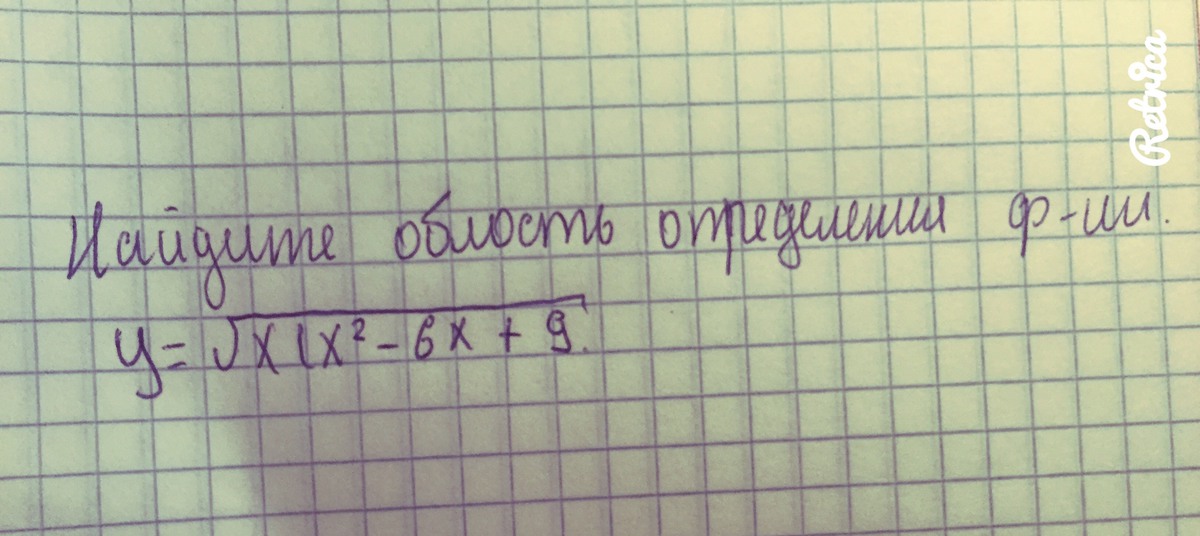 Найдите область определения ф-ии.
y = √x(x² - 6x + 9.
Retrica